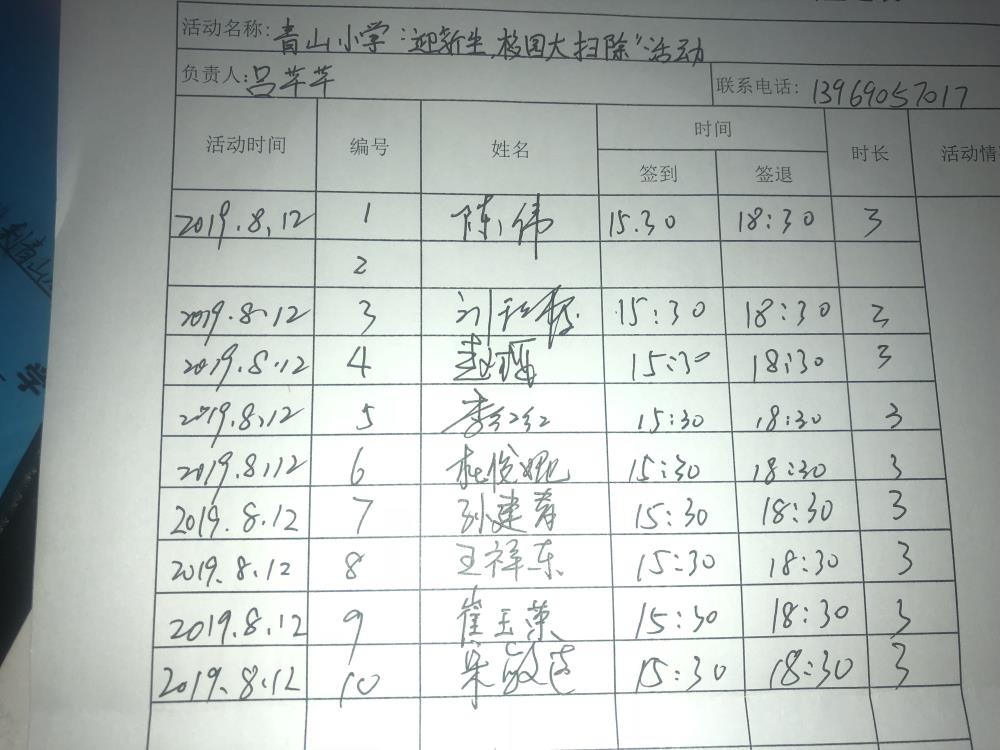 活动名称: 青山小学“迎新生,校园大扫除”活动
负责人: 吕芊芊 联系电话: 13969057017
活动时间 编号 姓名 时间 时长 活动情
签到 签退
2019.8.12 1 陈伟 15.30 18:30 3
2
2019.8.12 3 刘 15:30 18:30 3
2019.8.12 4 赵 15:30 18:30 3
2019.8.12 5 李红红 15:30 18:30 3
2019.8.12 6 杜俊 15:30 18:30 3
2019.8.12 7 孙建 15:30 18:30 3
2019.8.12 8 王祥东 15:30 18:30 3
2019.8.12 9 崔玉荣 15:30 18:30 3
2019.8.12 10 敬 15:30 18:30 3